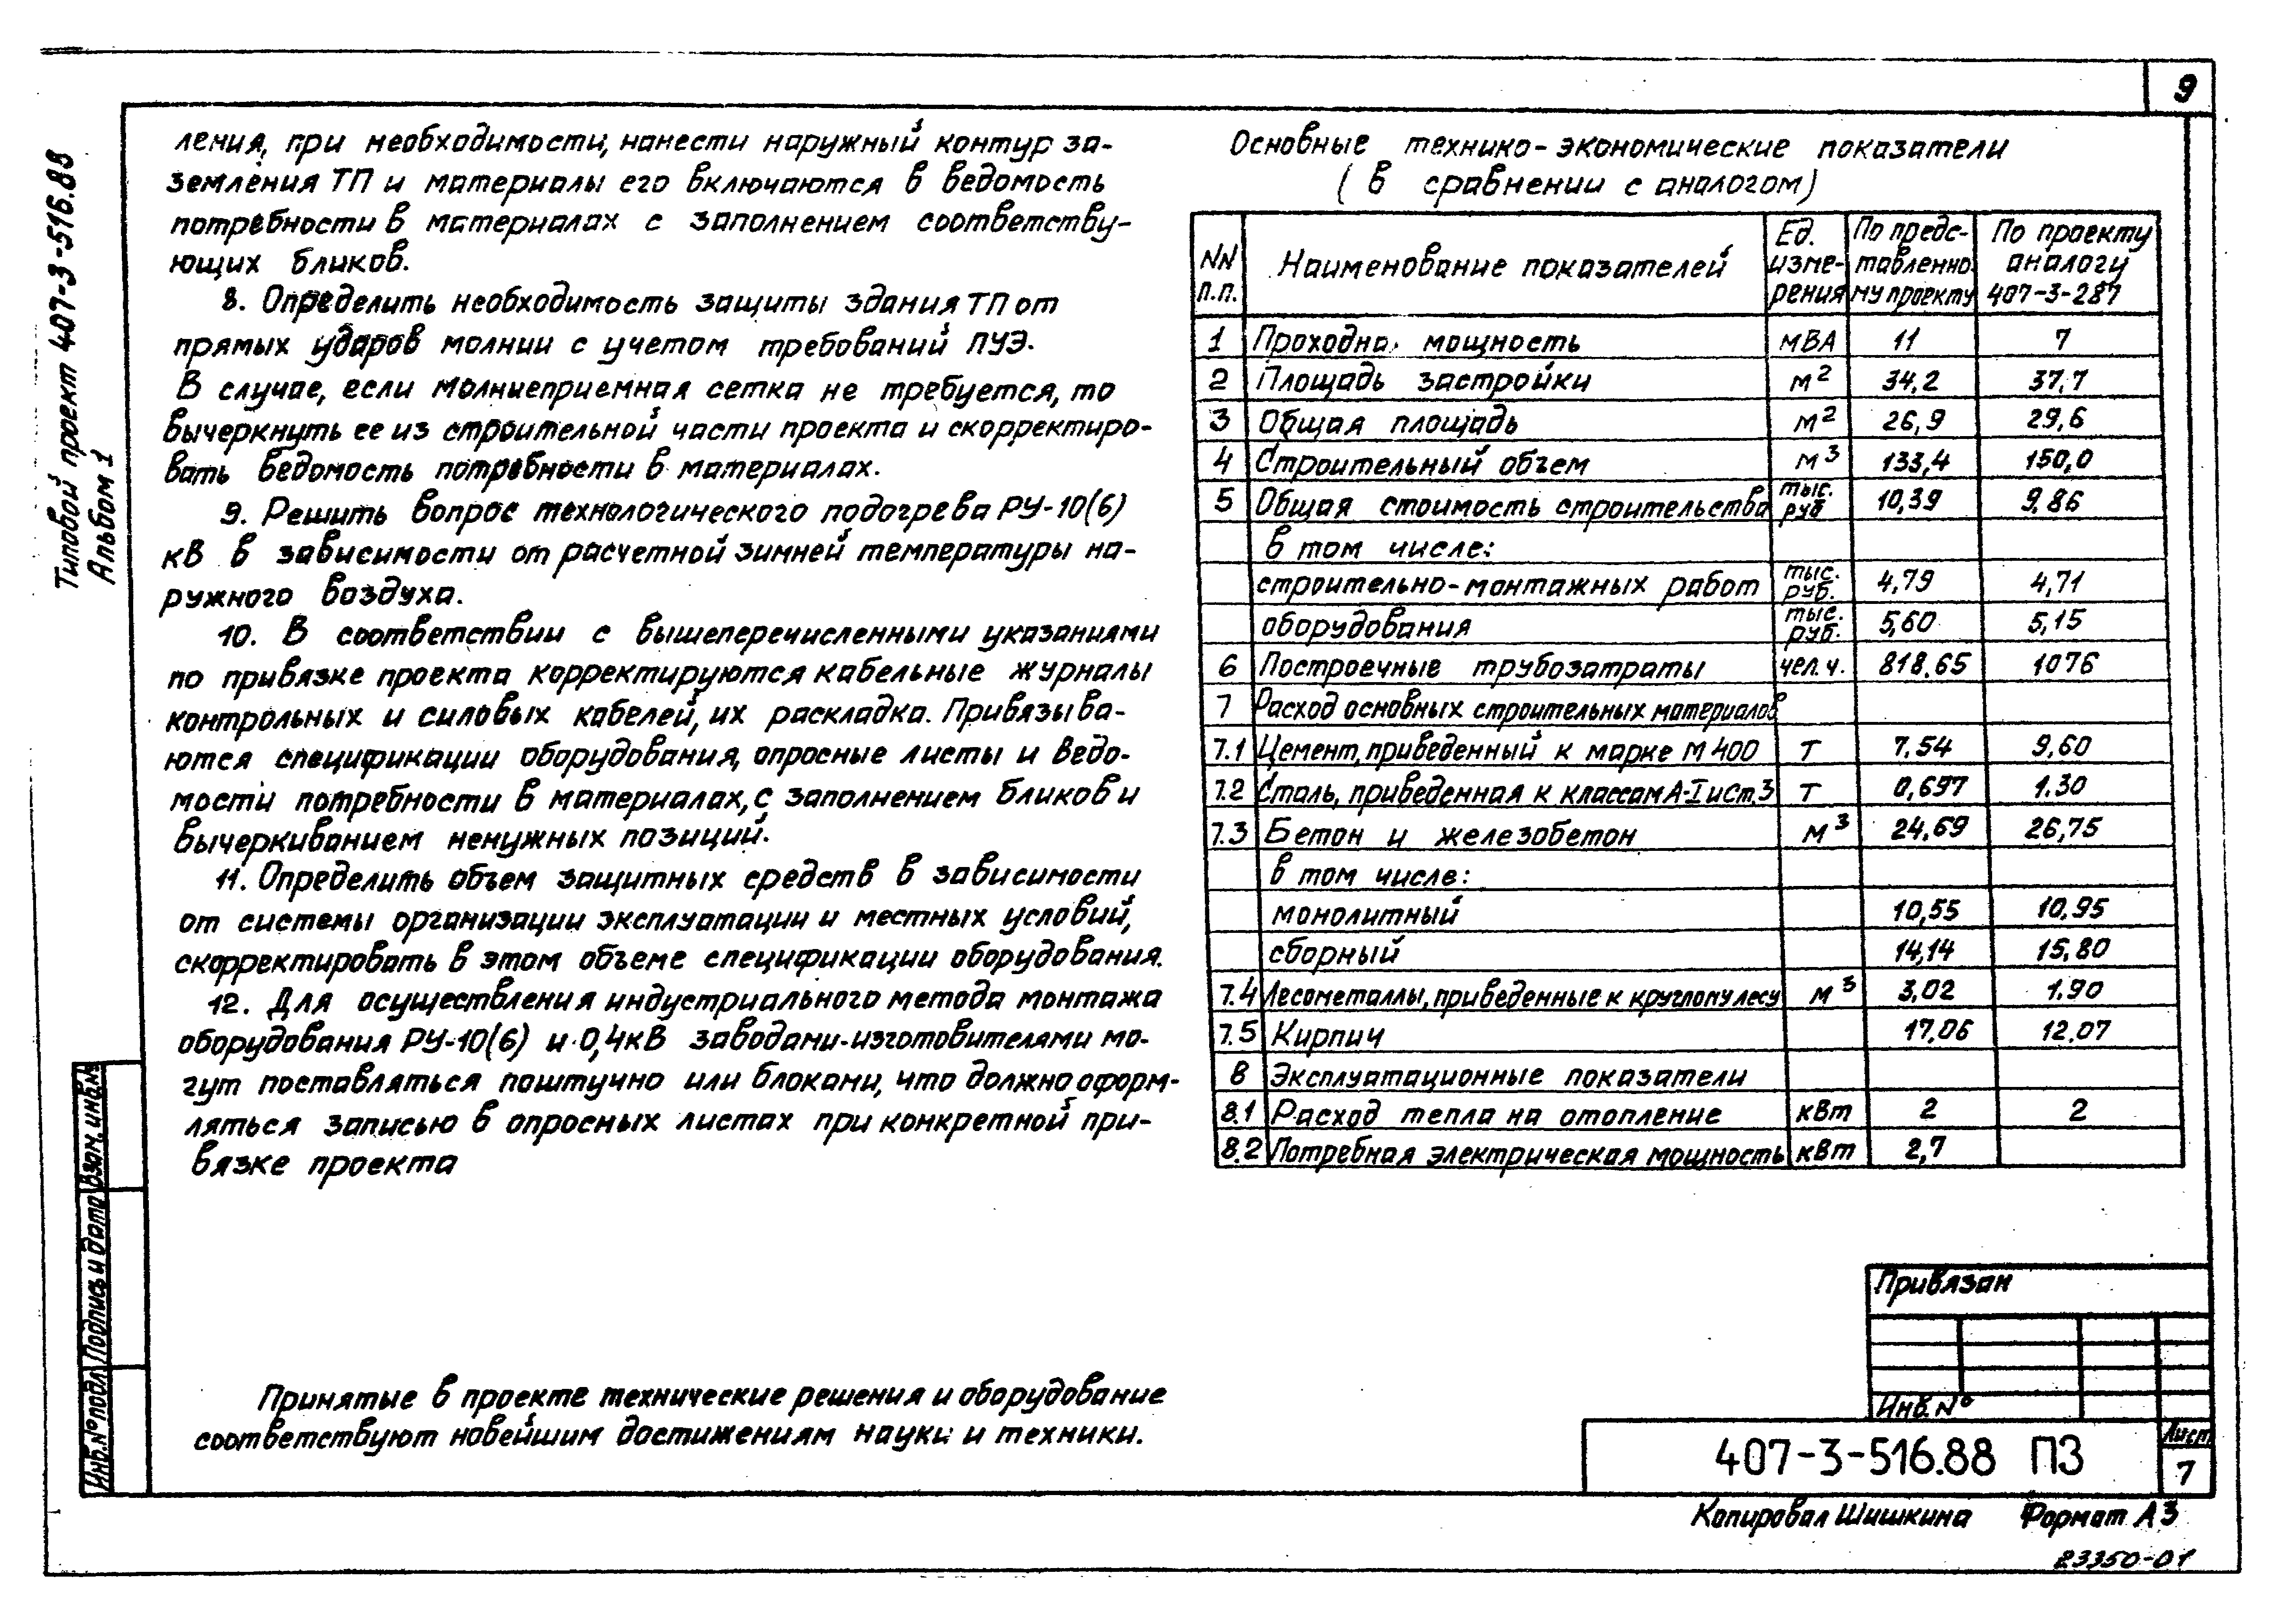 9
Типовой проект 407-3-516.88
Альбом 1
ления, при необходимости, нанести наружный контур за-
земления ТП и материалы его включаются в ведомость
потребности в материалах с заполнением соответству-
ющих бликов.
8. Определить необходимость защиты здания ТП от
прямых ударов молнии с учетом требований ПУЭ.
В случае, если молниеприемная сетка не требуется, то
вычеркнуть ее из строительной части проекта и скорректиро-
вать ведомость потребности в материалах.
9. Решить вопрос технологического подогрева РУ-10(6)
кВ в зависимости от расчетной зимней температуры на-
ружного воздуха.
10. В соответствии с вышеперечисленными указаниями
по привязке проекта корректируются кабельные журналы
контрольных и силовых кабелей, их раскладка. Привязыва-
ются спецификации оборудования, опросные листы и ведо-
мости потребности в материалах, с заполнением бликов и
вычеркиванием ненужных позиций.
11. Определить объем защитных средств в зависимости
от системы организации эксплуатации и местных условий,
скорректировать в этом объеме спецификации оборудования.
12. Для осуществления индустриального метода монтажа
оборудования РУ-10(6) и 0,4кВ заводами-изготовителями мо-
гут поставляться поштучно или блоками, что должно оформ-
ляться записью в опросных листах при конкретной при-
вязке проекта
Принятые в проекте технические решения и оборудование
соответствуют новейшим достижениям науки и техники.
Основные технико-экономические показатели
(в сравнении с аналогом)
NN п.п. Наименование показателей Ед. изме-рения По предс-тавленно-му проекту По проекту аналогу 407-3-287
1 Проходна. мощность мВА 11 7
2 Площадь застройки м2 34,2 37,7
3 Общая площадь м2 26,9 29,6
4 Строительный объем м3 133,4 150,0
5 Общая стоимость строительства тыс. руб 10,39 9,86
в том числе:
строительно-монтажных работ тыс. руб. 4,79 4,71
оборудования тыс. руб. 5,60 5,15
6 Построечные трубозатраты чел.ч. 818,65 1076
7 Расход основных строительных материалов
7.1 Цемент, приведенный к марке М400 Т 7.54 9,60
7.2 Сталь, приведенная к классам А-I и Ст.3 Т 0,697 1.30
7.3 Бетон и железобетон м3 24,69 26,75
в том числе:
монолитный 10,55 10.95
сборный 14,14 15,80
7.4 Лесометаллы, приведенные к круглому лесу м3 3,02 1.90
7.5 Кирпич 17,06 12.07
8 Эксплуатационные показатели
8.1 Расход тепла на отопление кВт 2 2
8.2 Потребная электрическая мощность кВт 2,7
Взам. инв.№
Подпись и дата
Инв.№ подл.
Привязан
Инв.№
407-3-516.88 ПЗ
Лист
7
Копировал Шишкина Формат А3
23350-01